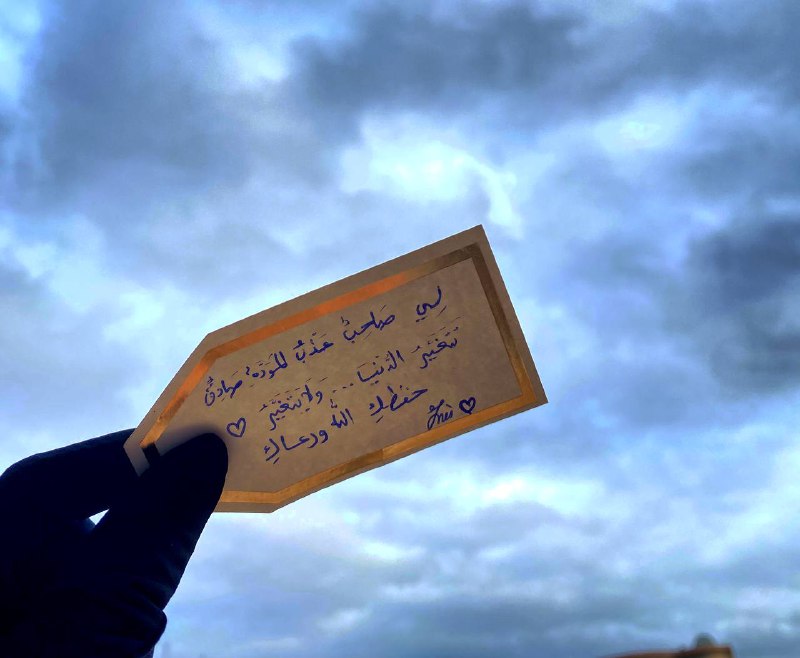 لِي صَاحِبٌ عَذْبُ المَوَدَّةِ صَادِقٌ
تَتَغَيَّرُ الدُّنْيَا... وَلَا يَتَغَيَّرُ ♡
حفظكِ اللهُ ورعاكِ
♡